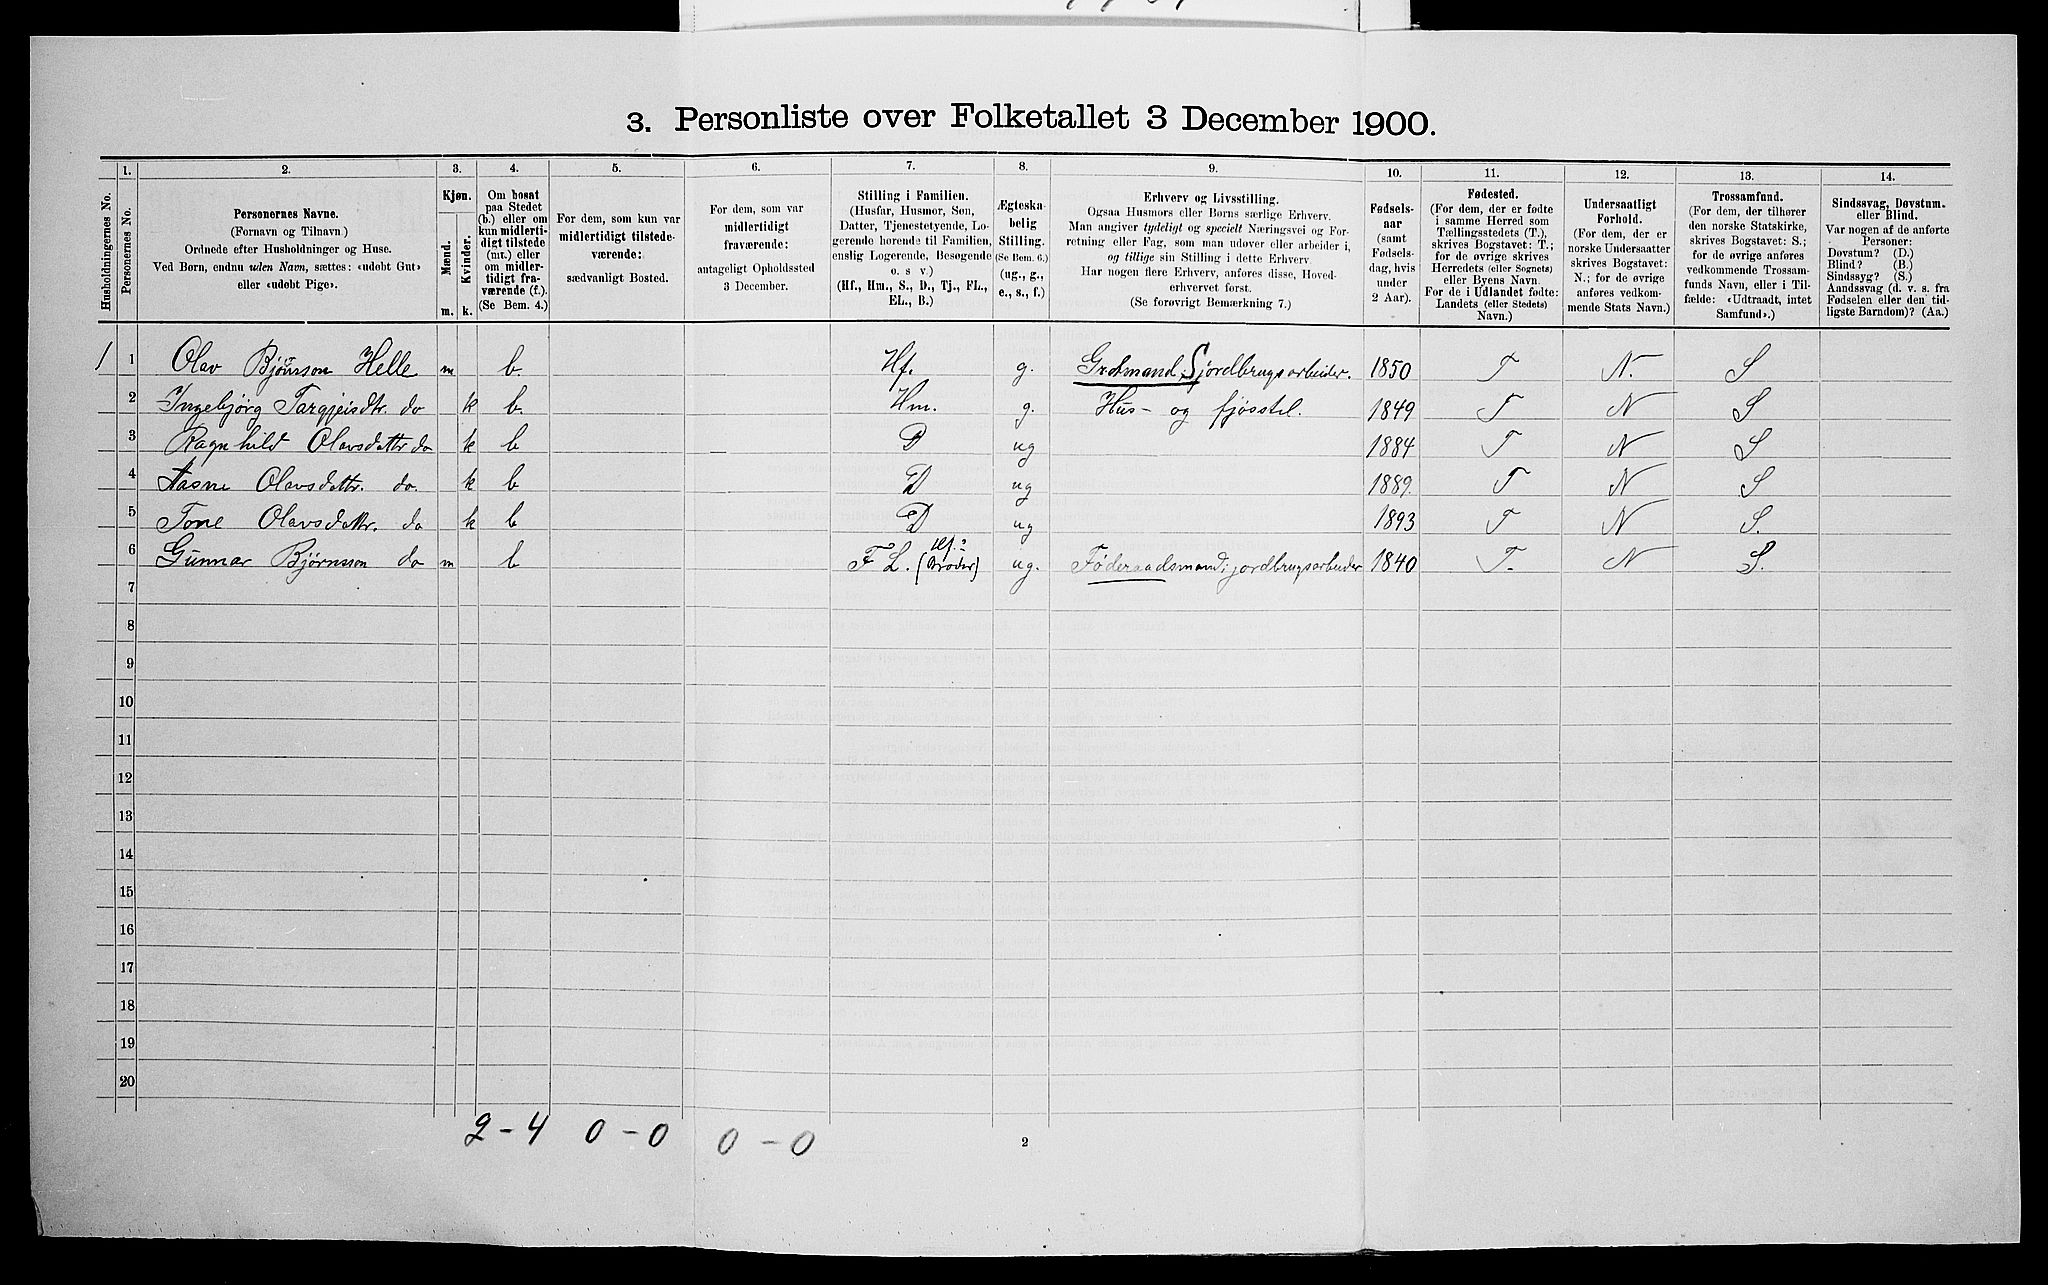 3. Personliste over Folketallet 3 December 1900.
1. 2. 3. 4. 5. 6. 7. 8. 9. 10. 11. 12. 13. 14.
Husholdningernes No.
Personernes No.
Personernes Navne.
(Fornavn og Tilnavn.)
Ordnede efter Husholdninger og Huse.
Ved Børn, endnu uden Navn, sættes: «udøbt Gut»
eller «udøbt Pige».
Kjøn.
Mænd.
Kvinder.
m. k.
Om bosat
paa Stedet
(b.) eller om
kun midlerti-
digt tilstede
(mt.) eller
om midler-
tidigt fra-
værende (f.).
(Se Bem. 4.)
For dem, som kun var
midlertidigt tilstede-
værende:
sædvanligt Bosted.
For dem, som var
midlertidigt
fraværende:
antageligt Opholdssted
3 December.
Stilling i Familien.
(Husfar, Husmor, Søn,
Datter, Tjenestetyende, Lo-
gerende hørende til Familien,
enslig Logerende, Besøgende
o. s v.)
(Hf., Hm., S., D., Tj., FL.,
EL., B.)
Ægteska-
belig
Stilling.
(Se Bem. 6.)
(ug., g.,
e., s., f.)
Erhverv og Livsstilling.
Ogsaa Husmors eller Børns særlige Erhverv.
Man angiver tydeligt og specielt Næringsvei og For-
retning eller Fag, som man udøver eller arbeider i,
og tillige sin Stilling i dette Erhverv.
Har nogen flere Erhverv, anføres disse, Hoved-
erhvervet først.
(Se forøvrigt Bemærkning 7.)
Fødsels-
aar
(samt
Fødsels-
dag, hvis
under
2 Aar).
Fødested.
(For dem, der er fødte
i samme Herred som
Tællingsstedets (T.),
skrives Bogstavet: T.;
for de øvrige skrives
Herredets (eller Sognets)
eller Byens Navn.
For de i Udlandet fødte:
Landets (eller Stedets)
Navn.)
Undersaatligt
Forhold.
(For dem, der er
norske Undersaatter
skrives Bogstavet:
N.; for de øvrige
anføres vedkom-
mende Stats Navn.)
Trossamfund.
(For dem, der tilhører
den norske Statskirke,
skrives Bogstavet: S.;
for de øvrige anføres
vedkommende Trossam-
funds Navn, eller i Til-
fælde: «Udtraadt, intet
Samfund».)
Sindssvag, Døvstum
eller Blind.
Var nogen af de anførte
Personer:
Døvstum? (D.)
Blind? (B.)
Sindssyg? (S.)
Aandssvag (d. v. s. fra
Fødselen eller den tid-
ligste Barndom)? (Aa.)
1 1 Olav Bjørnson Helle m b. Hf. g. Grdmand, jordbrugsarbeider. 1850 T N. S
2 Ingebjørg Targjeisdtr. do k b. Hm. g. Hus- og fjøsstel. 1849 T N S
3 Ragnhild Olavsdattr do k b D ug 1884 T N S
4 Aasne Olavsdattr. do. k b D ug 1889. T N S
5 Tone Olavsdattr. do k b D ug 1893 T N S.
6 Gunnar Bjørnsson do m b F L. (Hf.s Broder) ug. Føderaadsmand; jordbrugsarbeider 1840 T. N S.
7
8
9
10
11
12
13
14
15
16
17
18
19
20
2 - 4 0 - 0 0 - 0
2